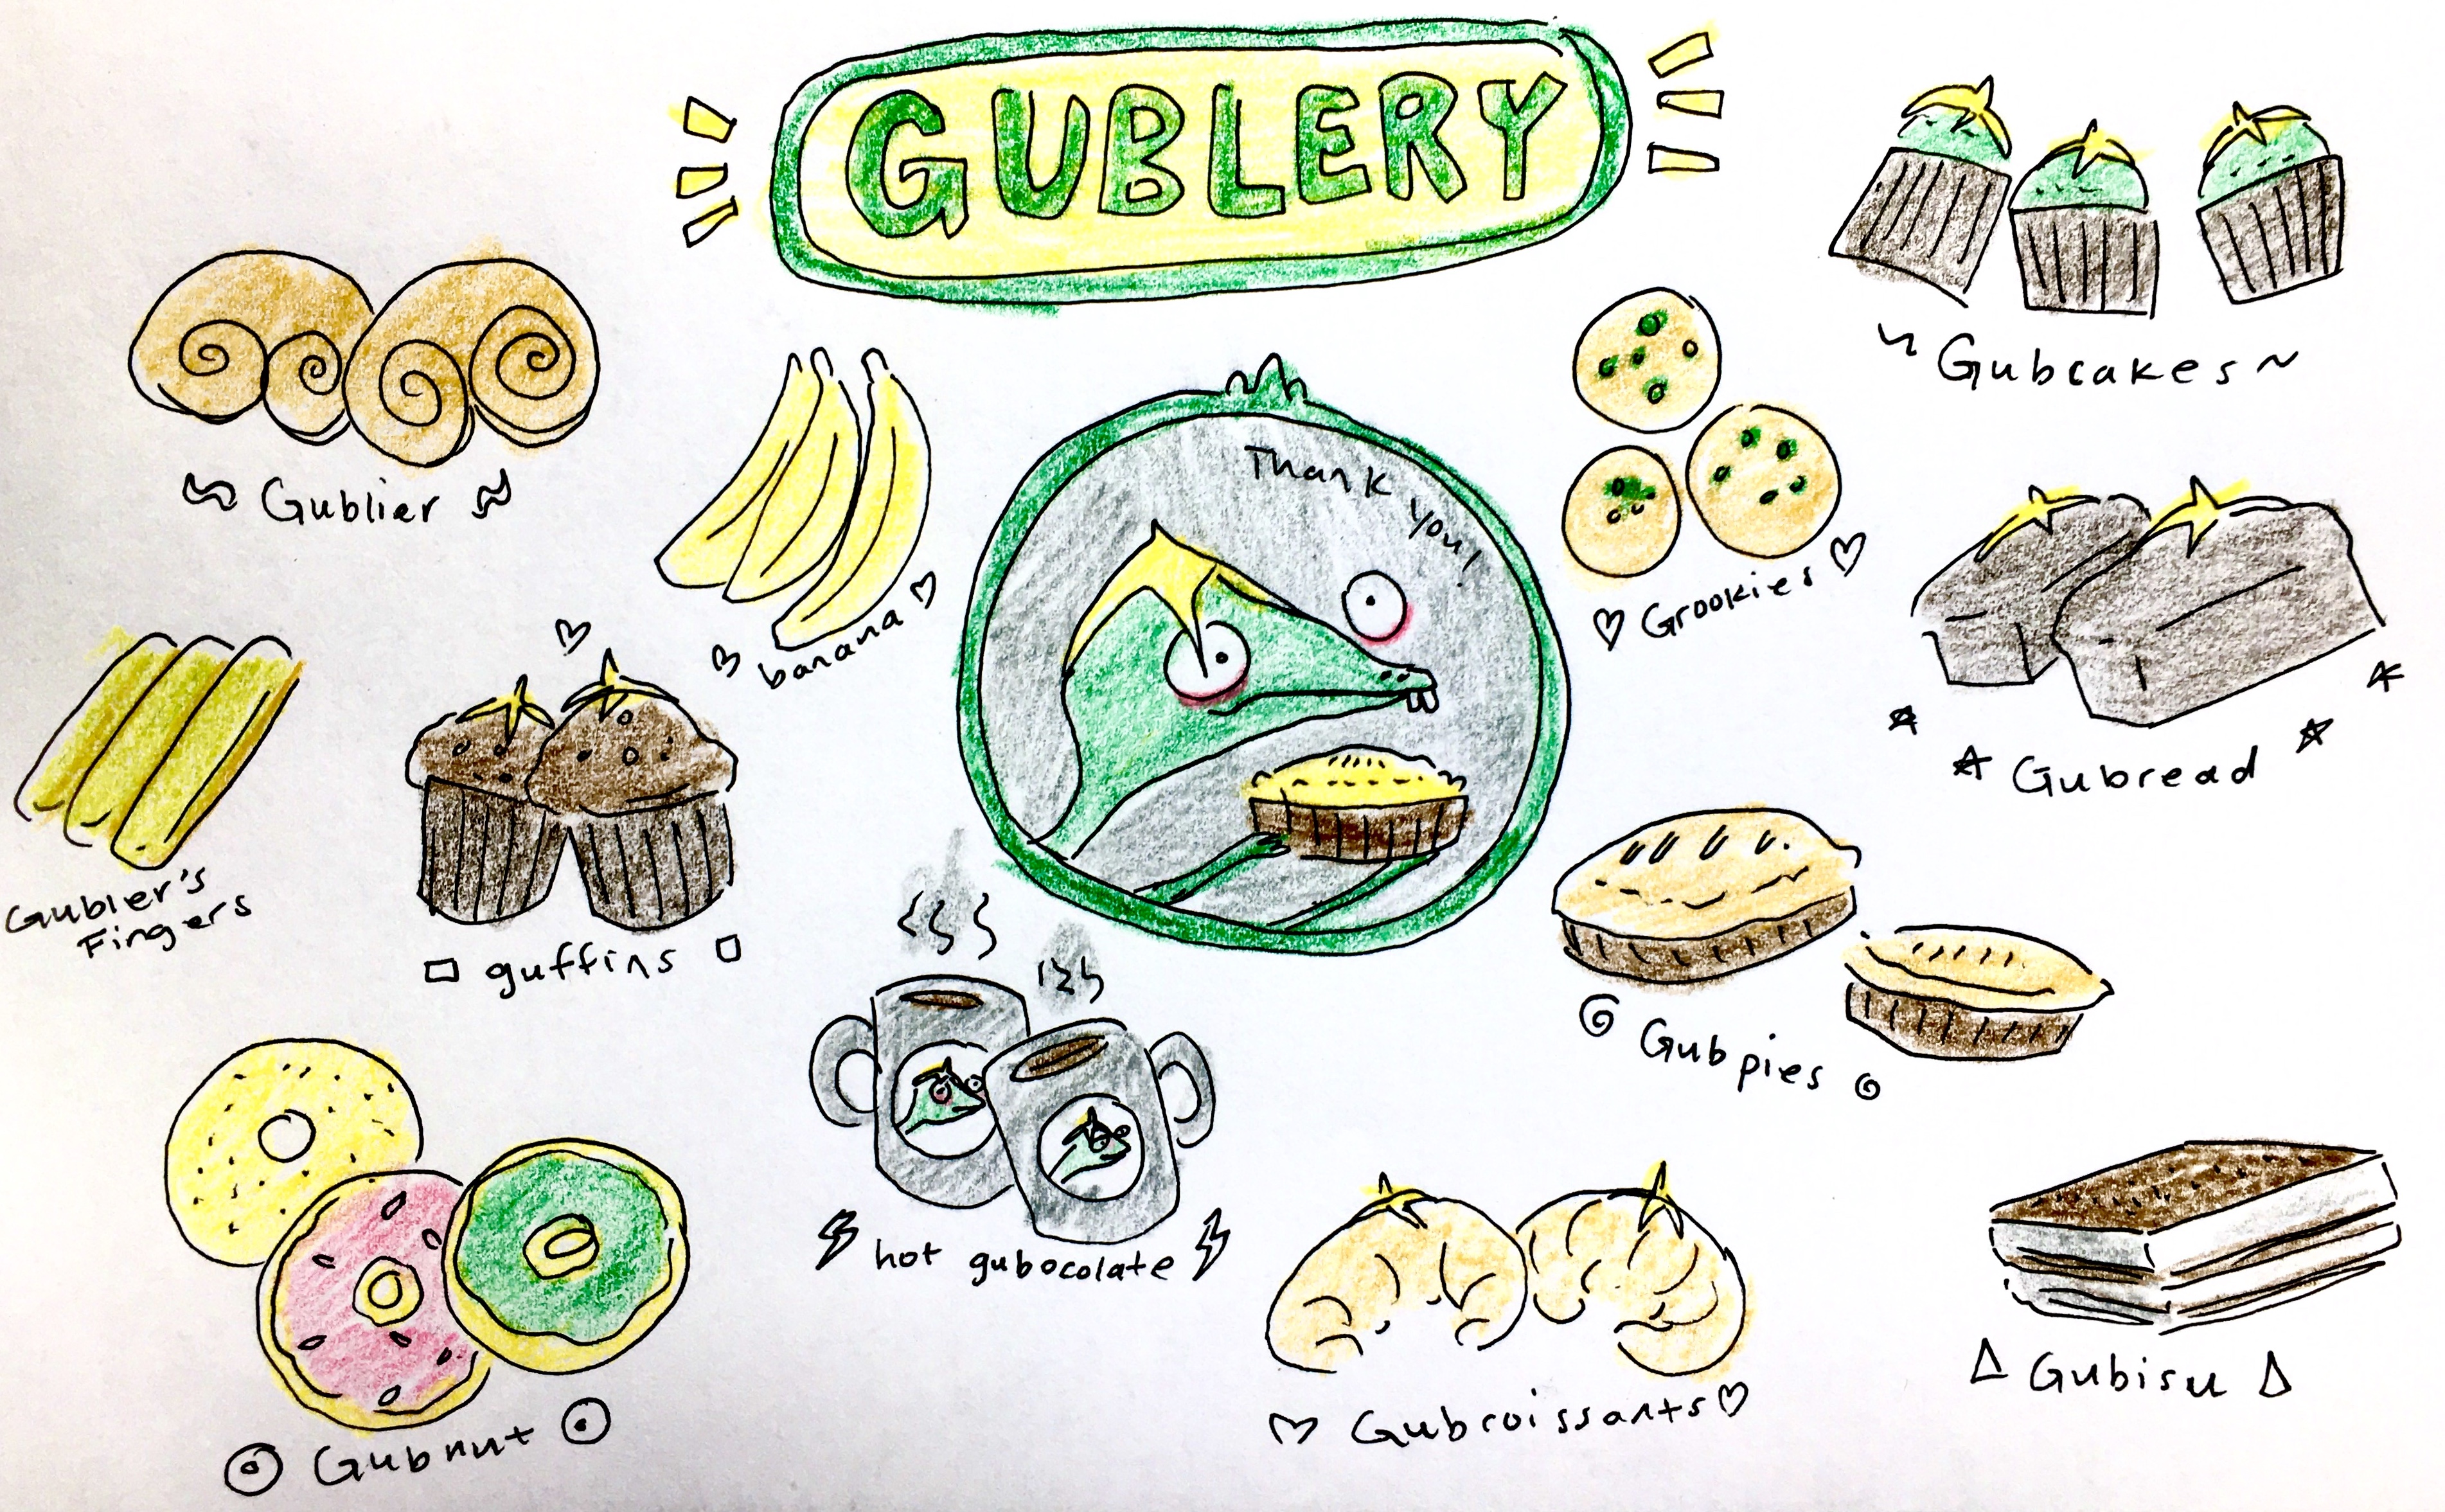 GUBLERY
Gubcakes
Gublier
banana
Thank
you!
Grookies
Gubread
Gubler's
Fingers
guffins
Gubpies
hot gubocolate
Gubroissants
Gubisu
Gubnut